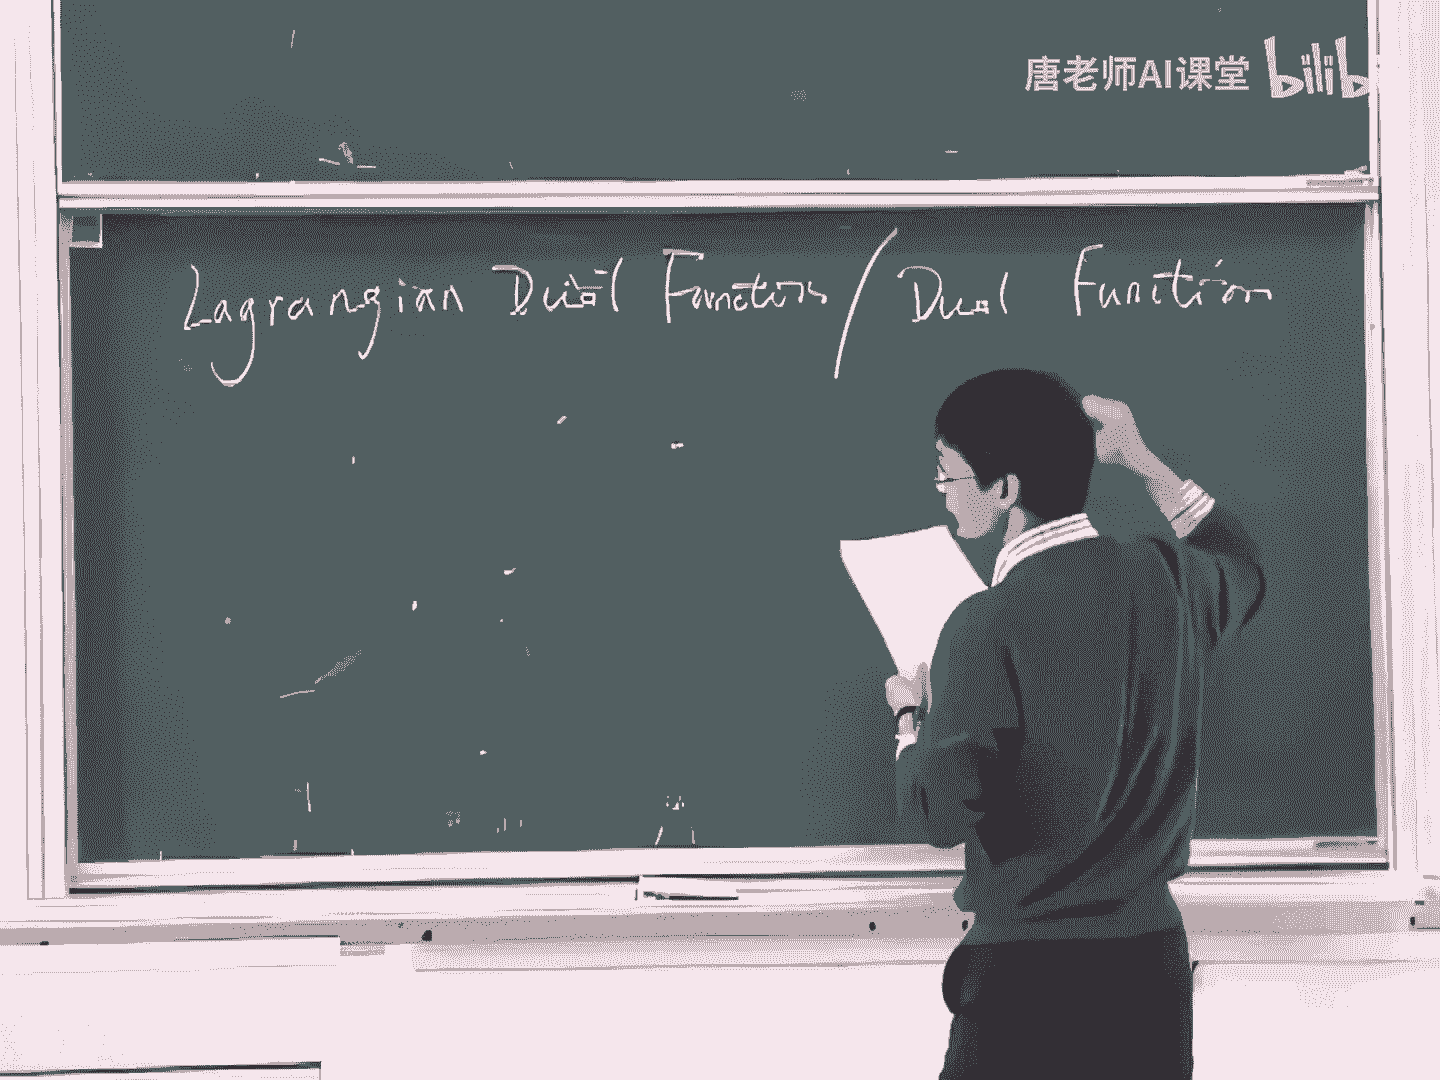 唐老师AI课堂 bilib
Lagrangian Dual Function / Dual Function